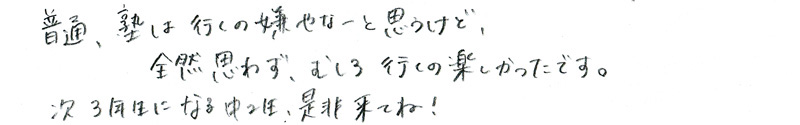 普通、塾は行くの嫌やなーと思うけど、
全然思わず、むしろ行くの楽しかったです。
次3年生になる中2生、是非来てね!